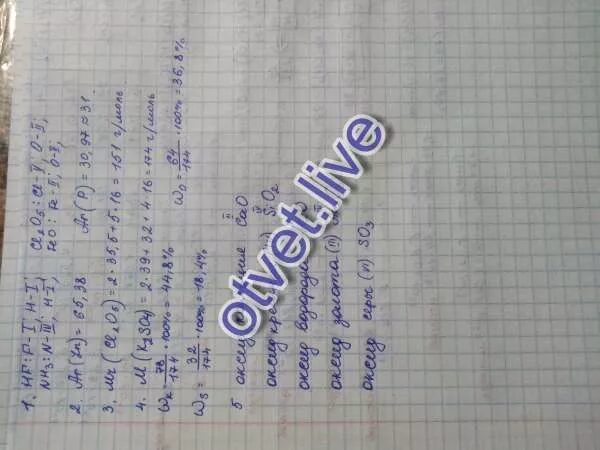 1. HF: F-I; H-I; Cl₂O₅: Cl-V; O-II;
NH₃: N-III; H-I; FeO: Fe-II; O-II;
2. Ar(Zn) = 65,38 Ar(P) = 30,97 ≈ 31
3. Mr(Cl₂O₅) = 2·35,5+5·16 = 151 г/моль
4. M(K₂SO₄) = 2·39+32+4·16 = 174 г/моль
ωK = 78/174 ·100% = 44,8% ωO = 64/174 ·100% = 36,8%
ωS = 32/174 ·100% = 18,4%
5 оксид CaO
оксид SiO₂
оксид
оксид золота (II)
оксид серы (VI) SO₃
otvet.live